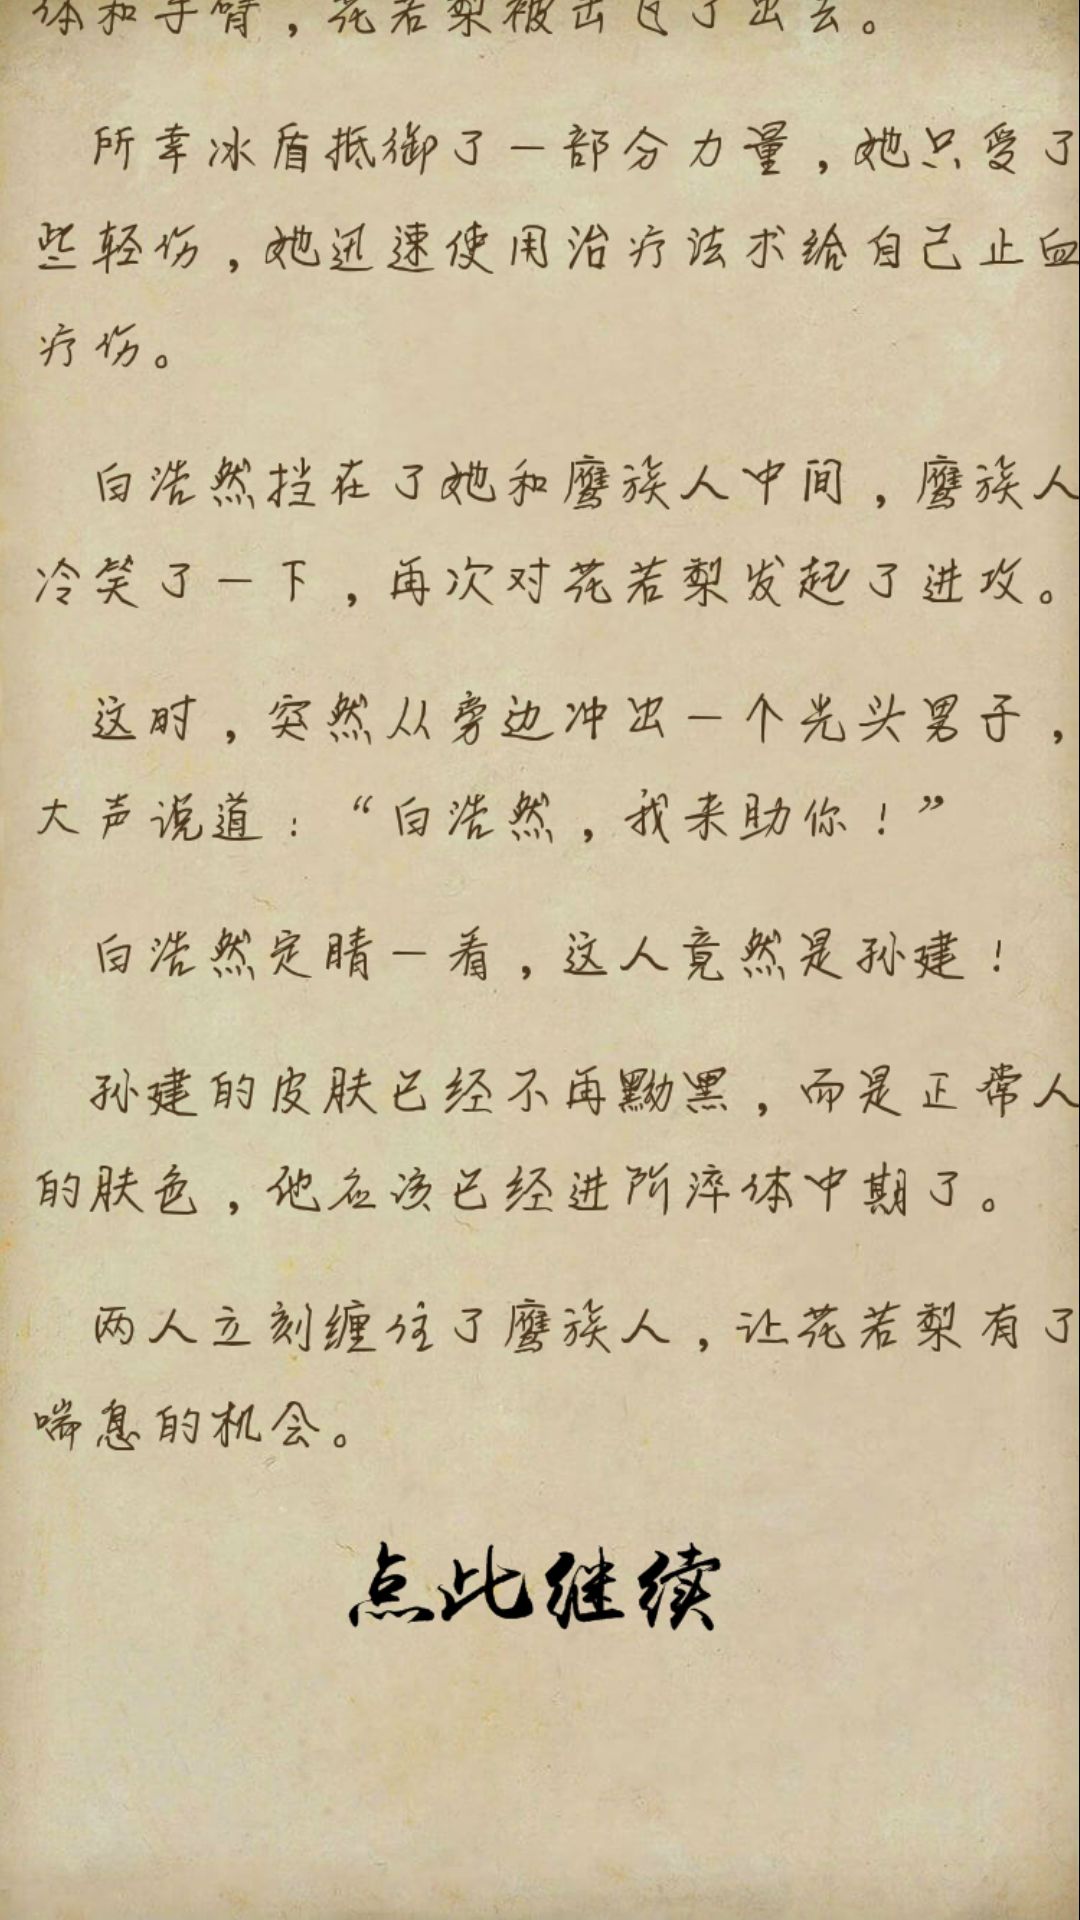 体和手臂，花若梨被击飞了出去。
所幸冰盾抵御了一部分力量，她只受了
些轻伤，她迅速使用治疗法术给自己止血
疗伤。
白浩然挡在了她和鹰族人中间，鹰族人
冷笑了一下，再次对花若梨发起了进攻。
这时，突然从旁边冲出一个光头男子，
大声说道：“白浩然，我来助你！”
白浩然定睛一看，这人竟然是孙建！
孙建的皮肤已经不再黝黑，而是正常人
的肤色，他应该已经进阶淬体中期了。
两人立刻缠住了鹰族人，让花若梨有了
喘息的机会。
点此继续